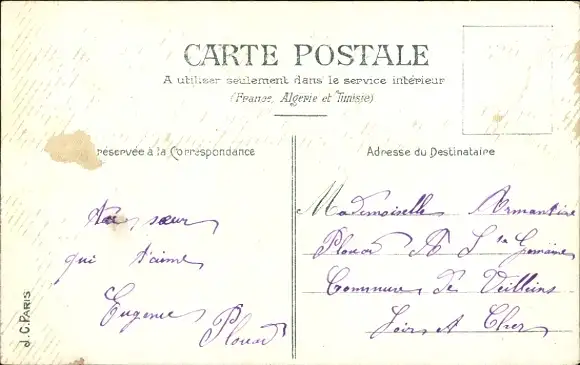 CARTE POSTALE
A utiliser seulement dans le service intérieur
(France, Algérie et Tunisie)
réservée à la Correspondance
Adresse du Destinataire
ta sœur
qui t'aime
Eugenie
Plouard
Mademoiselle Armantine
Plouard A Ste Gemme
Commune de Veilleins
Loir et Cher
J.C. PARIS